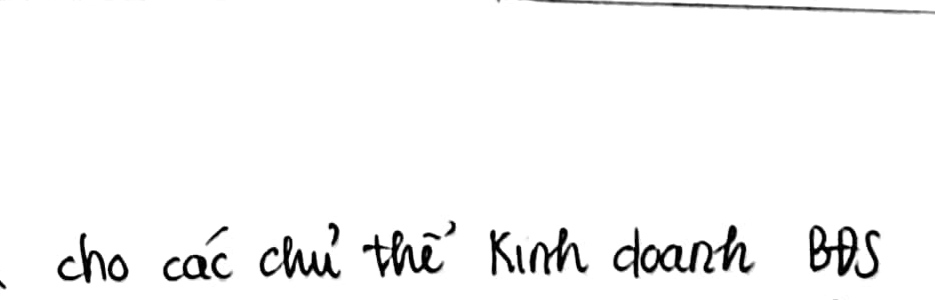 cho các chủ thể Kinh doanh BĐS